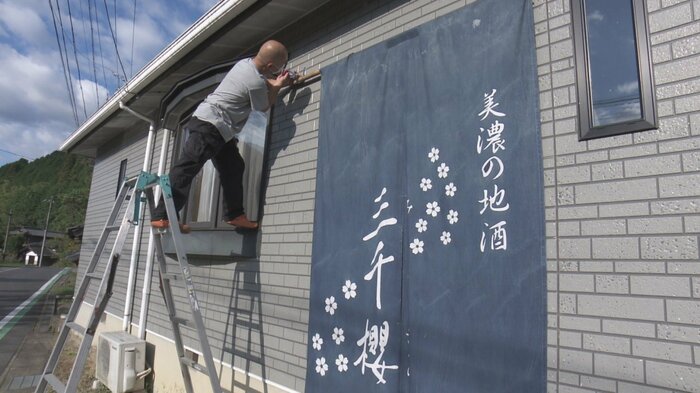 美濃の地酒
三千櫻